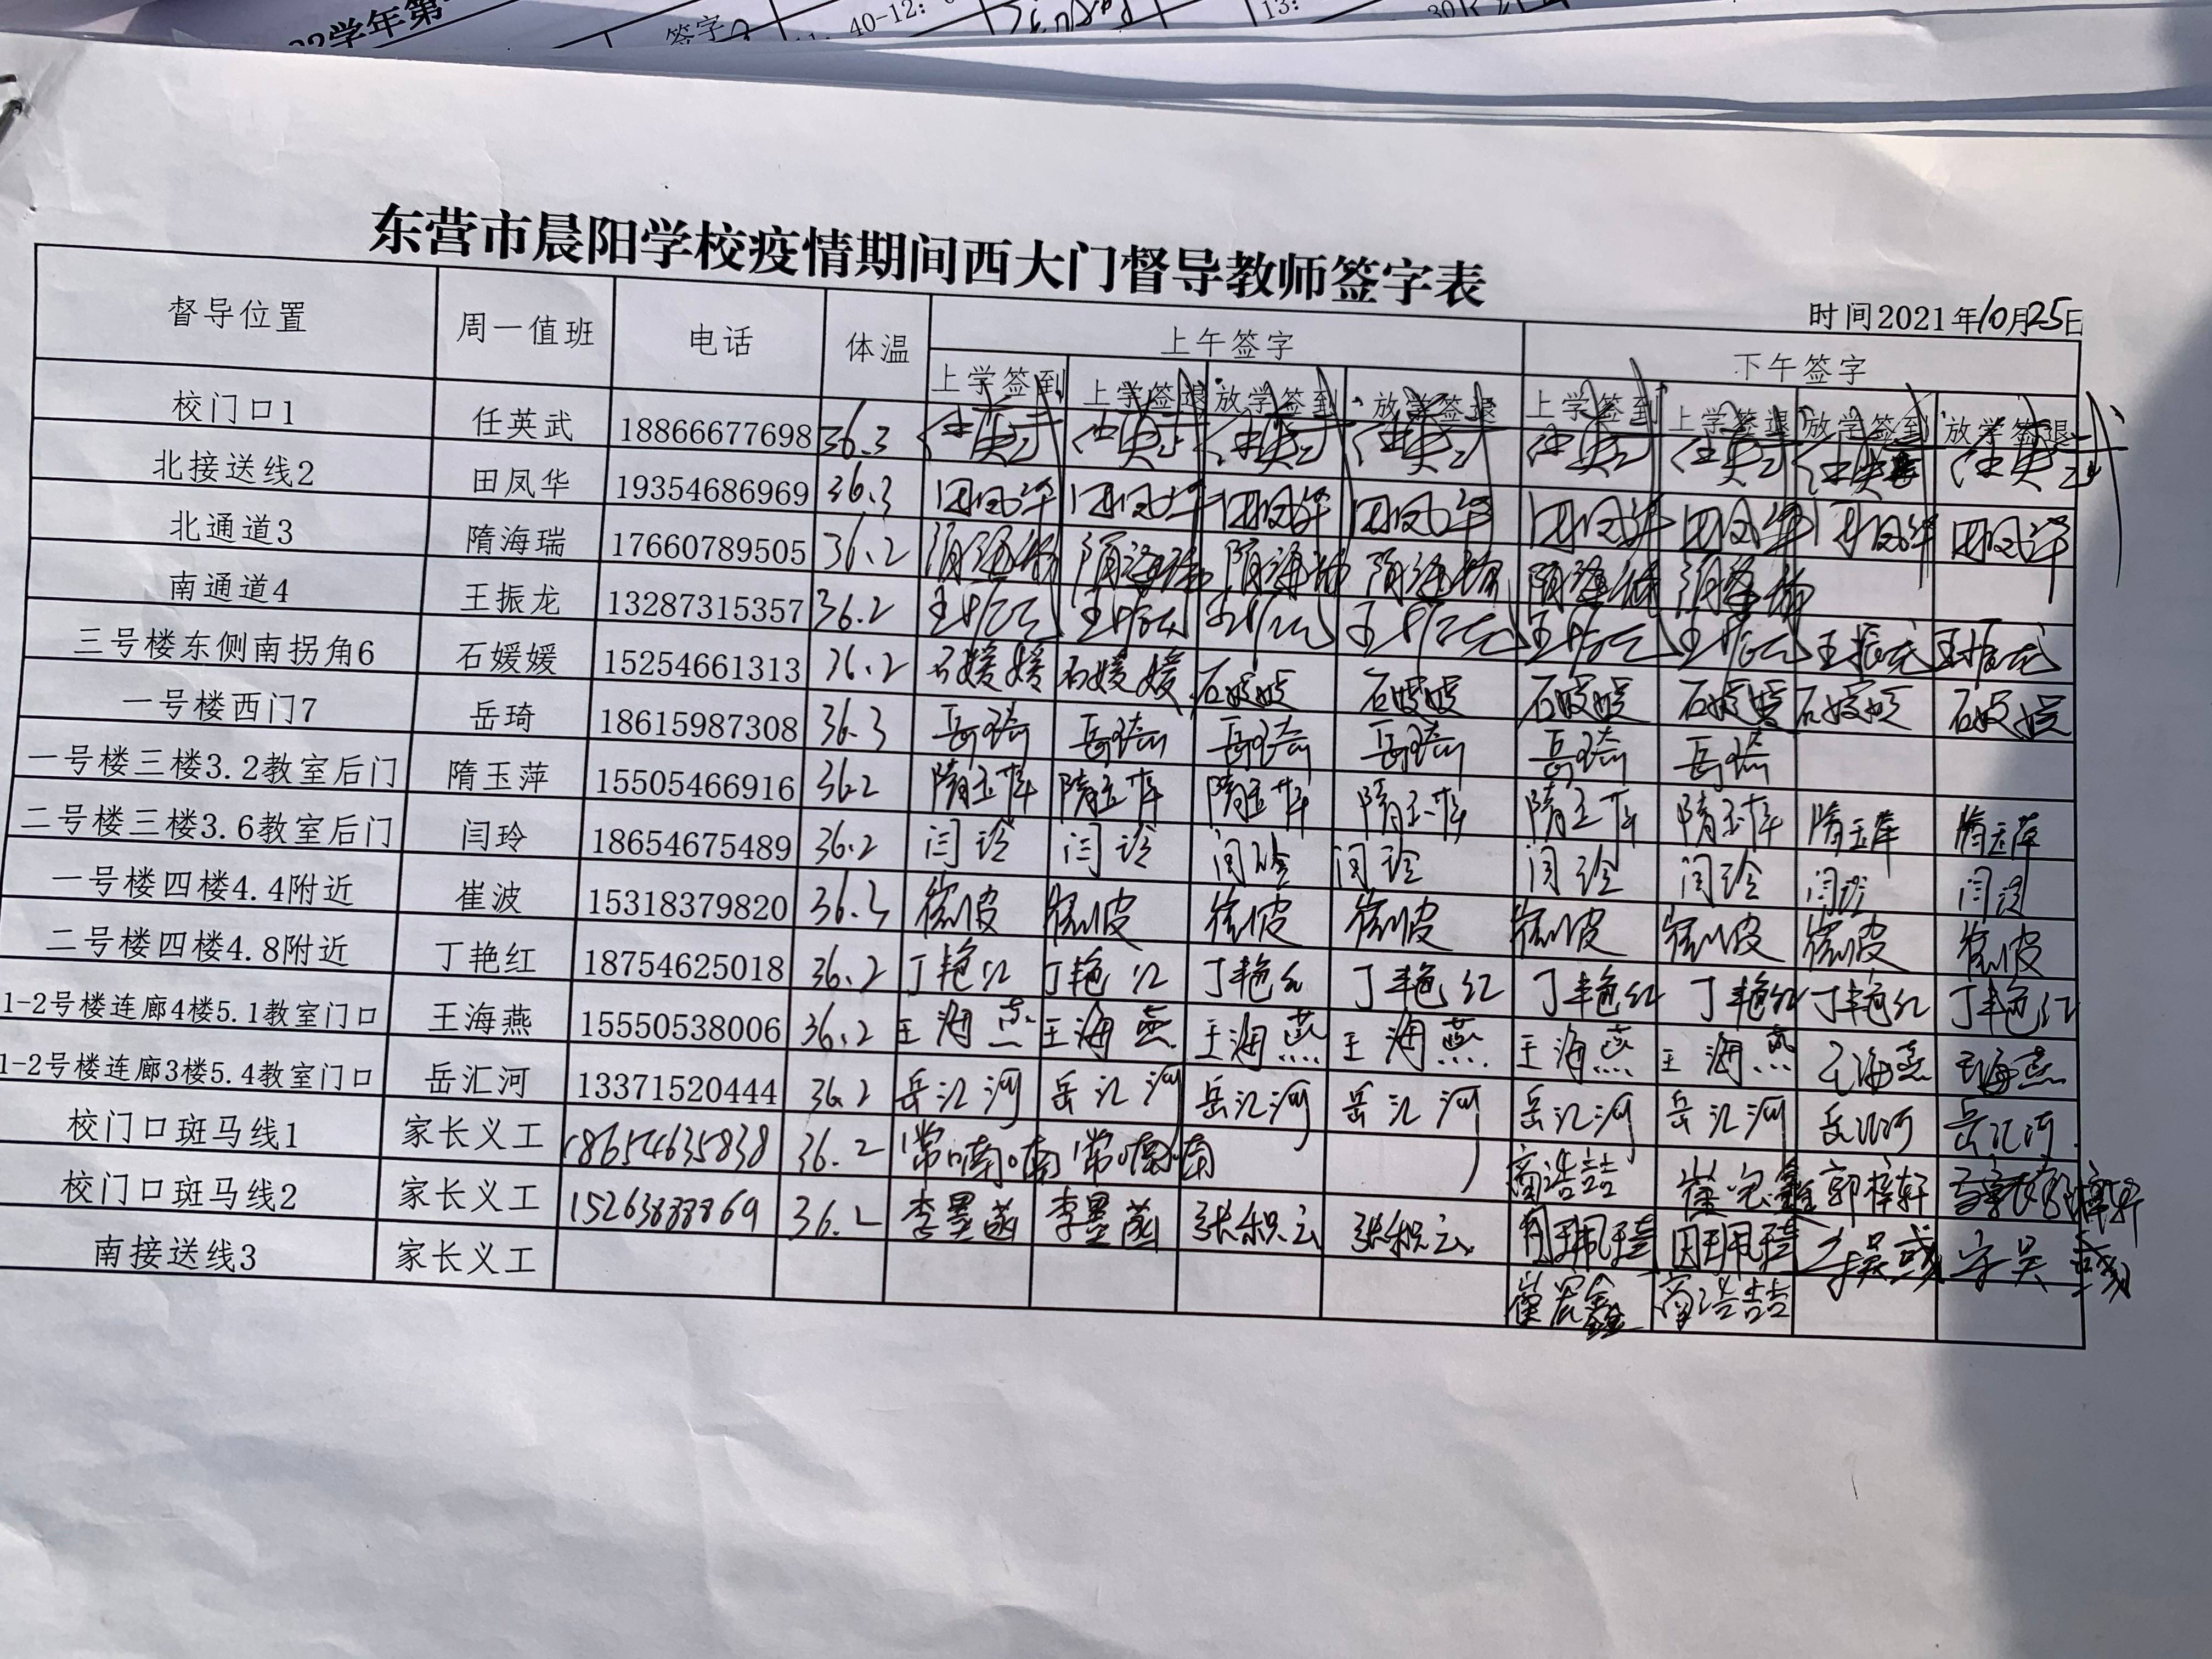 22学年第
签字
40-12:
13:
30
东营市晨阳学校疫情期间西大门督导教师签字表
时间2021年10月25日
督导位置 周一值班 电话 体温 上午签字 下午签字
上学签到 上学签退 放学签到 放学签退 上学签到 上学签退 放学签到 放学签退
校门口1 任英武 18866677698 36.3 任英武 任英武 任英武 任英武 任英武 任英武 任英武 任英武
北接送线2 田凤华 19354686969 36.3 田凤华 田凤华 田凤华 田凤华 田凤华 田凤华 田凤华 田凤华
北通道3 隋海瑞 17660789505 36.2 隋海瑞 隋海瑞 隋海瑞 隋海瑞 隋海瑞 隋海瑞
南通道4 王振龙 13287315357 36.2 王振龙 王振龙 王振龙 王振龙 王振龙 王振龙 王振龙 王振龙
三号楼东侧南拐角6 石媛媛 15254661313 36.2 石媛媛 石媛媛 石媛媛 石媛媛 石媛媛 石媛媛 石媛媛 石媛媛
一号楼西门7 岳琦 18615987308 36.3 岳琦 岳琦 岳琦 岳琦 岳琦 岳琦
一号楼三楼3.2教室后门 隋玉萍 15505466916 36.2 隋玉萍 隋玉萍 隋玉萍 隋玉萍 隋玉萍 隋玉萍 隋玉萍 隋玉萍
二号楼三楼3.6教室后门 闫玲 18654675489 36.2 闫玲 闫玲 闫玲 闫玲 闫玲 闫玲 闫玲 闫玲
一号楼四楼4.4附近 崔波 15318379820 36.3 崔波 崔波 崔波 崔波 崔波 崔波 崔波 崔波
二号楼四楼4.8附近 丁艳红 18754625018 36.2 丁艳红 丁艳红 丁艳红 丁艳红 丁艳红 丁艳红 丁艳红 丁艳红
1-2号楼连廊4楼5.1教室门口 王海燕 15550538006 36.2 王海燕 王海燕 王海燕 王海燕 王海燕 王海燕 王海燕 王海燕
1-2号楼连廊3楼5.4教室门口 岳汇河 13371520444 36.2 岳汇河 岳汇河 岳汇河 岳汇河 岳汇河 岳汇河 岳汇河 岳汇河
校门口斑马线1 家长义工 18654635838 36.2 常喃喃 常喃喃 商浩喆 郭梓轩
校门口斑马线2 家长义工 15263888869 36.2 李墨菡 李墨菡 张积云 张积云
南接送线3 家长义工 商浩喆